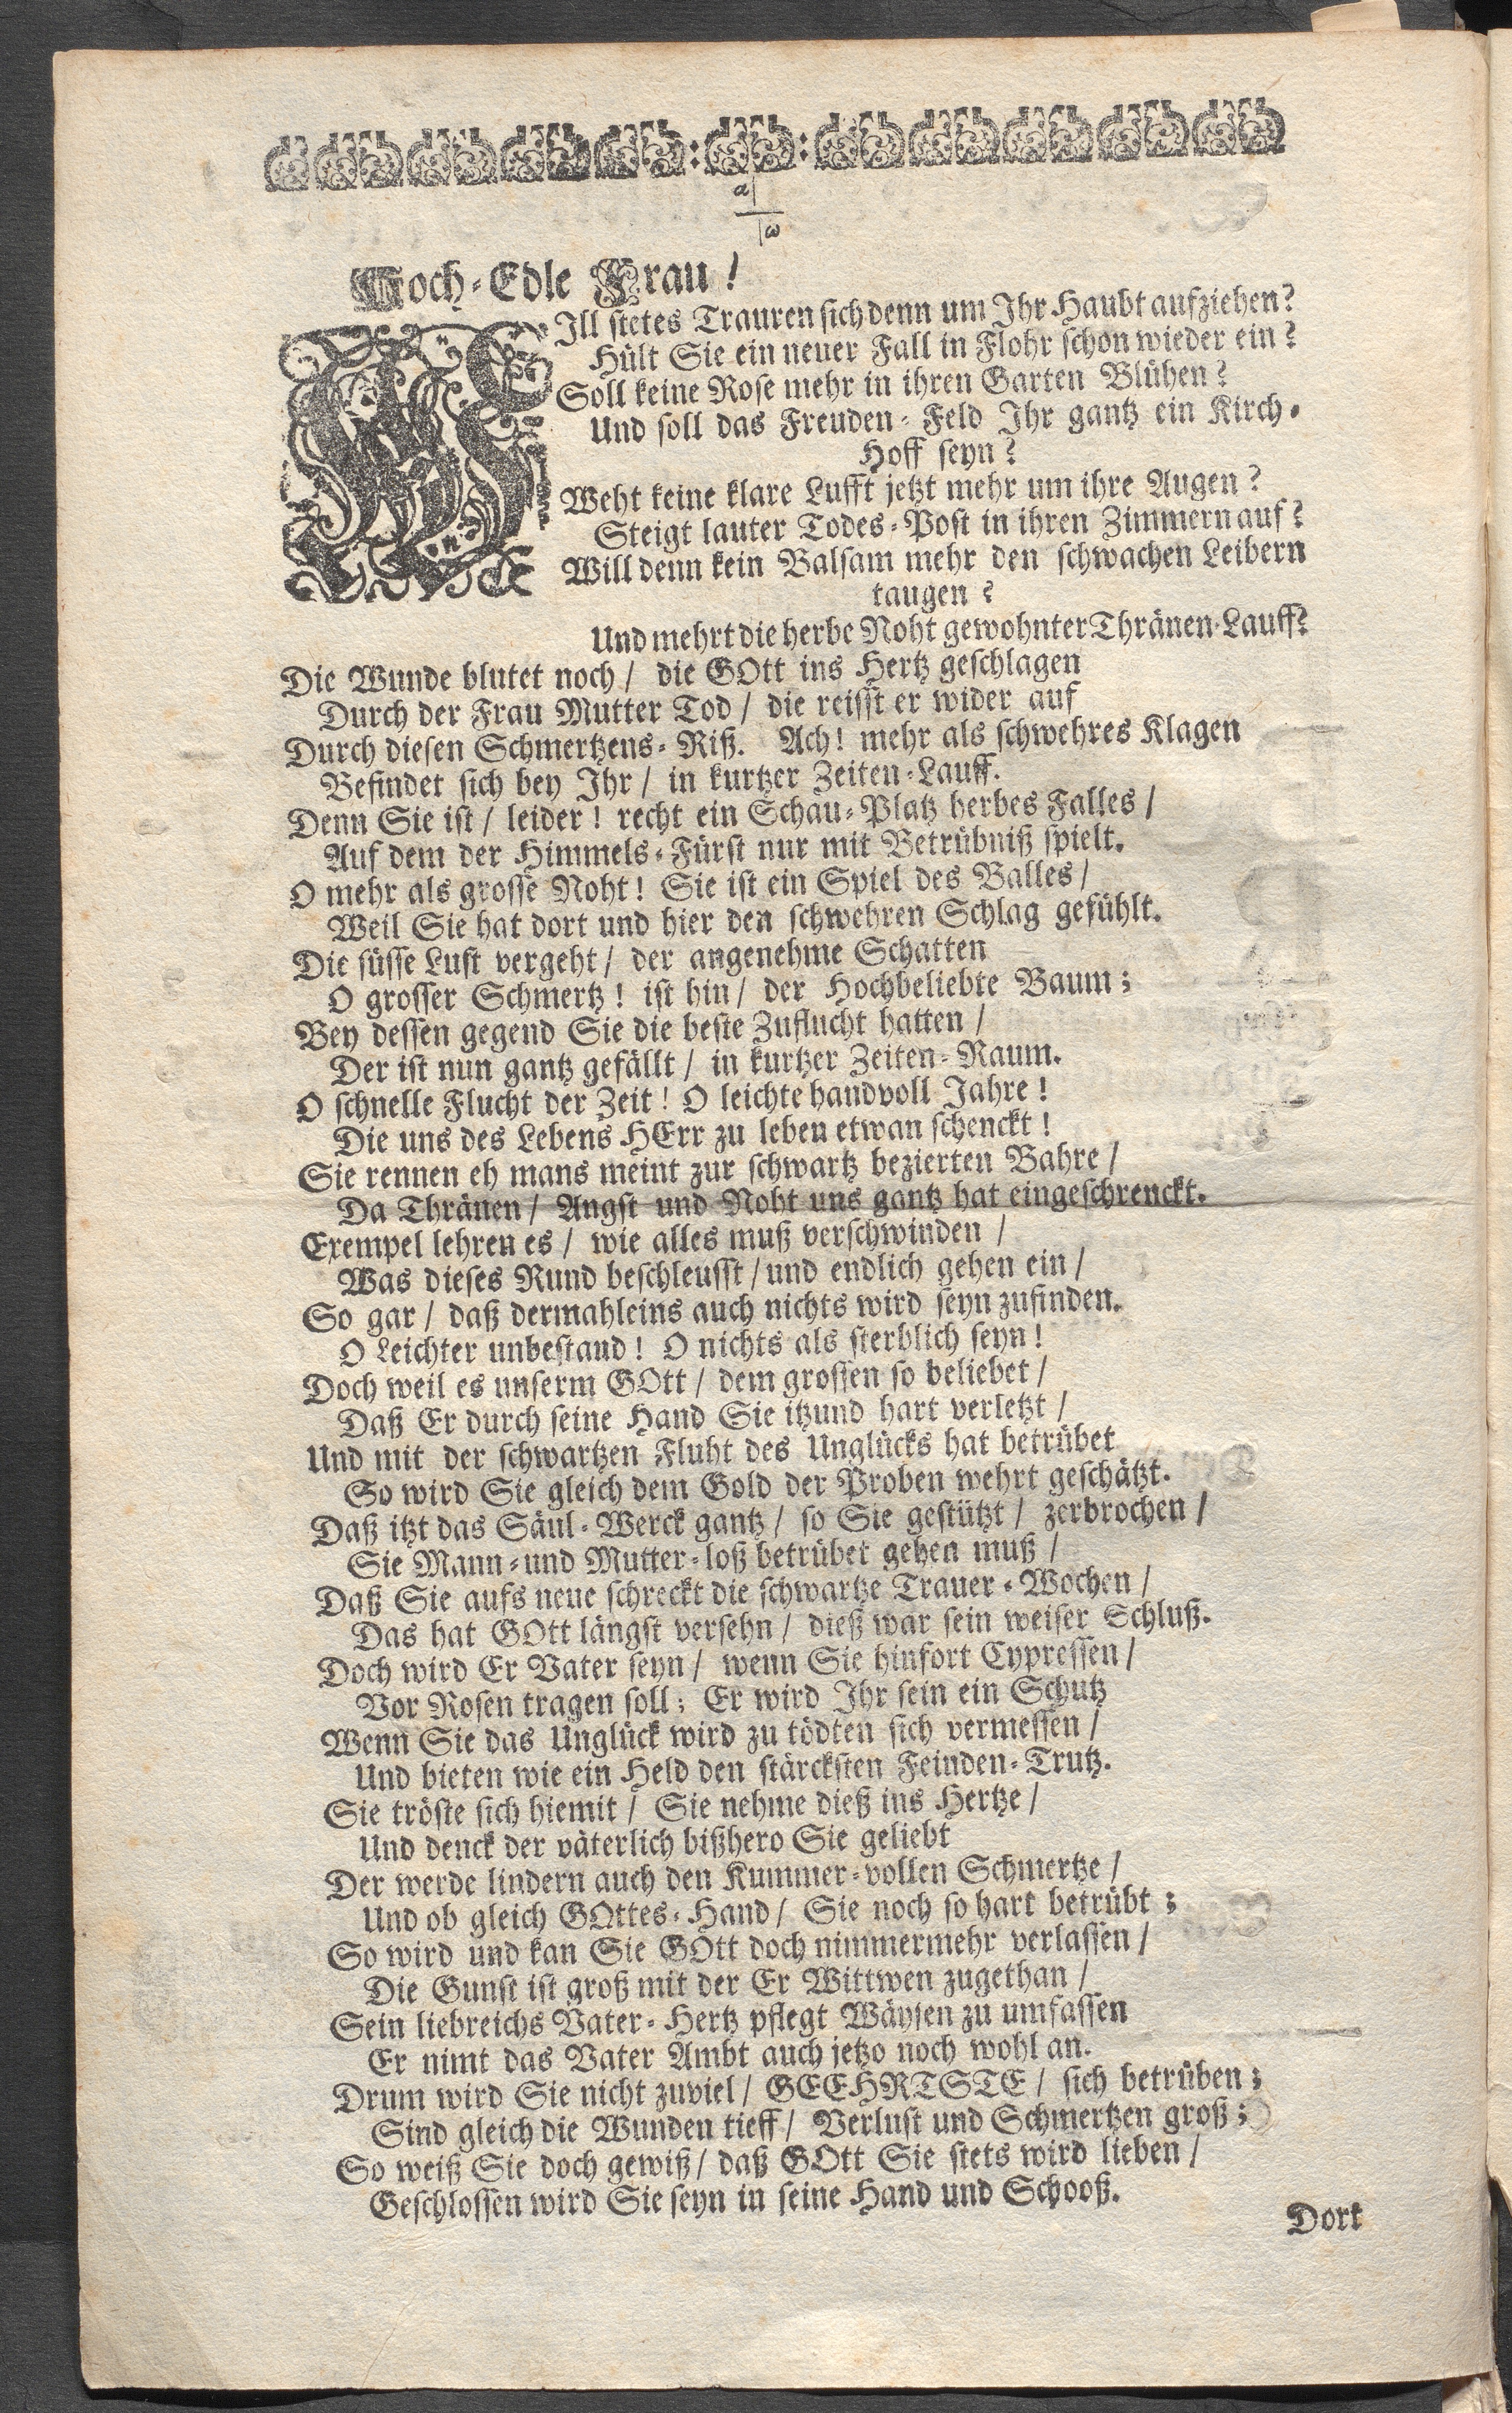 α
ω
Hoch-Edle Frau!
WJll stetes Trauren sich denn um Ihr Haubt aufziehen?
Hült Sie ein neuer Fall in Flohr schon wieder ein?
Soll keine Rose mehr in ihren Garten Blühen?
Und soll das Freuden-Feld Ihr gantz ein Kirch-
Hoff seyn?
Weht keine klare Lufft jetzt mehr um ihre Augen?
Steigt lauter Todes-Post in ihren Zimmern auf?
Will denn kein Balsam mehr den schwachen Leibern
taugen?
Und mehrt die herbe Noht gewohnter Thränen-Lauff?
Die Wunde blutet noch / die GOtt ins Hertz geschlagen
Durch der Frau Mutter Tod / die reisst er wider auf
Durch diesen Schmertzens-Riß. Ach! mehr als schwehres Klagen
Befindet sich bey Ihr / in kurtzer Zeiten-Lauff.
Denn Sie ist / leider! recht ein Schau-Platz herbes Falles /
Auf dem der Himmels-Fürst nur mit Betrübniß spielt.
O mehr als grosse Noht! Sie ist ein Spiel des Balles /
Weil Sie hat dort und hier den schwehren Schlag gefühlt.
Die süsse Lust vergeht / der angenehme Schatten
O grosser Schmertz! ist hin / der Hochbeliebte Baum;
Bey dessen gegend Sie die beste Zuflucht hatten /
Der ist nun gantz gefällt / in kurtzer Zeiten-Raum.
O schnelle Flucht der Zeit! O leichte handvoll Jahre!
Die uns des Lebens HErr zu leben etwan schenckt!
Sie rennen eh mans meint zur schwartz bezierten Bahre /
Da Thränen / Angst und Noht uns gantz hat eingeschrenckt.
Exempel lehren es / wie alles muß verschwinden /
Was dieses Rund beschleusst / und endlich gehen ein /
So gar / daß dermahleins auch nichts wird seyn zufinden.
O Leichter unbestand! O nichts als sterblich seyn!
Doch weil es unserm GOtt / dem grossen so beliebet /
Daß Er durch seine Hand Sie itzund hart verletzt /
Und mit der schwartzen Fluht des Unglücks hat betrübet
So wird Sie gleich dem Gold der Proben wehrt geschätzt.
Daß itzt das Säul-Werck gantz / so Sie gestützt / zerbrochen /
Sie Mann-und Mutter-loß betrübet gehen muß /
Daß Sie aufs neue schreckt die schwartze Trauer-Wochen /
Das hat GOtt längst versehn / dieß war sein weiser Schluß.
Doch wird Er Vater seyn / wenn Sie hinfort Cypressen /
Vor Rosen tragen soll; Er wird Ihr sein ein Schutz
Wenn Sie das Unglück wird zu tödten sich vermessen /
Und bieten wie ein Held den stärcksten Feinden-Trutz.
Sie tröste sich hiemit / Sie nehme dieß ins Hertze /
Und denck der väterlich bißhero Sie geliebt
Der werde lindern auch den Kummer-vollen Schmertze /
Und ob gleich GOttes-Hand / Sie noch so hart betrübt;
So wird und kan Sie GOtt doch nimmermehr verlassen /
Die Gunst ist groß mit der Er Wittwen zugethan /
Sein liebreichs Vater-Hertz pflegt Wäysen zu umfassen
Er nimt das Vater Ambt auch jetzo noch wohl an.
Drum wird Sie nicht zuviel / GEEHRTSTE / sich betrüben;
Sind gleich die Wunden tieff / Verlust und Schmertzen groß;
So weiß Sie doch gewiß / daß GOtt Sie stets wird lieben /
Geschlossen wird Sie seyn in seine Hand und Schooß.
Dort